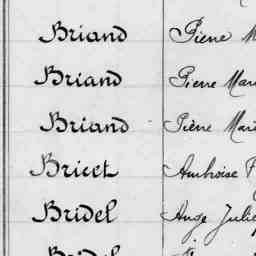 Briand Pierre M
Briand Pierre Mari
Briand Pierre Mari
Bricet Ambroise F
Bridel Ange Julie
Bridel